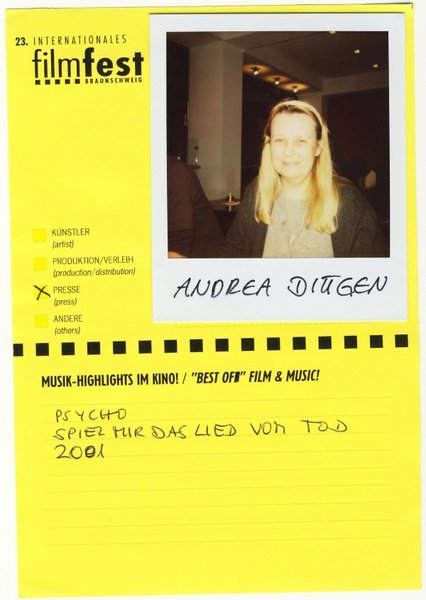 23. INTERNATIONALES
filmfest
BRAUNSCHWEIG
ANDREA DITTGEN
KÜNSTLER
(artist)
PRODUKTION/VERLEIH
(production/distribution)
PRESSE
(press)
ANDERE
(others)
MUSIK-HIGHLIGHTS IM KINO! / "BEST OF" FILM & MUSIC!
PSYCHO
SPIEL MIR DAS LIED VOM TOD
2001